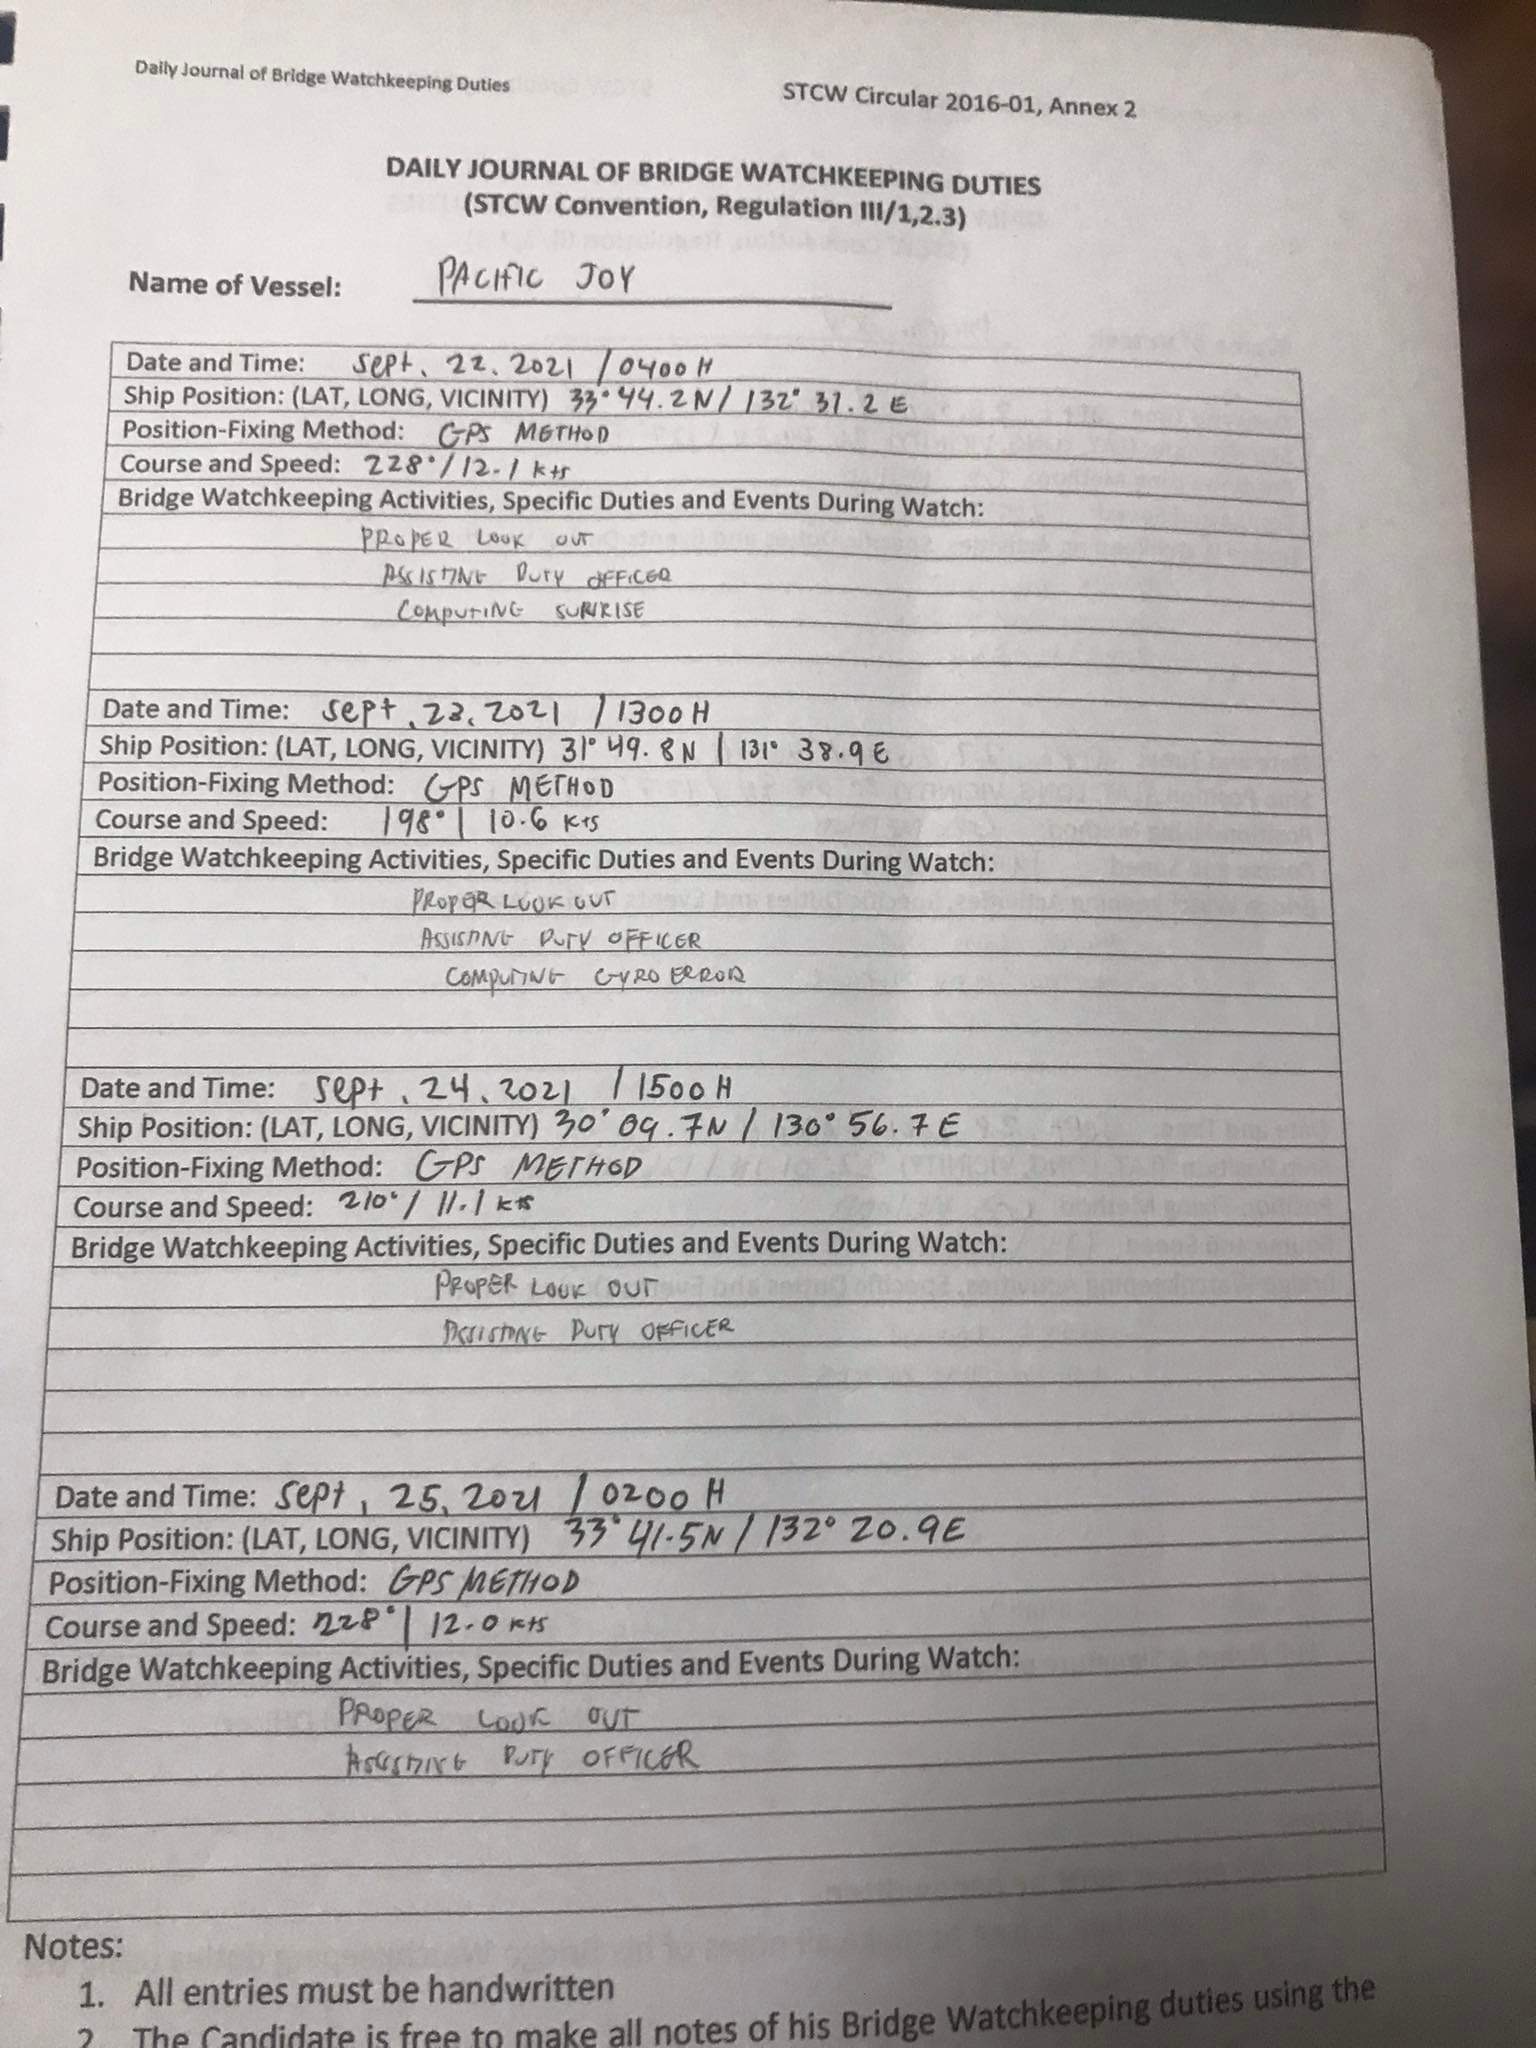 Daily Journal of Bridge Watchkeeping Duties
STCW Circular 2016-01, Annex 2
DAILY JOURNAL OF BRIDGE WATCHKEEPING DUTIES
(STCW Convention, Regulation III/1,2.3)
Name of Vessel: PACIFIC JOY
Date and Time: Sept. 22. 2021 / 0400 H
Ship Position: (LAT, LONG, VICINITY) 33° 44.2 N / 132° 31.2 E
Position-Fixing Method: GPS METHOD
Course and Speed: 228° / 12.1 kts
Bridge Watchkeeping Activities, Specific Duties and Events During Watch:
PROPER LOOK OUT
ASSISTING DUTY OFFICER
COMPUTING SUNRISE
Date and Time: Sept. 23. 2021 / 1300 H
Ship Position: (LAT, LONG, VICINITY) 31° 49.8 N | 131° 38.9 E
Position-Fixing Method: GPS METHOD
Course and Speed: 198° | 10.6 kts
Bridge Watchkeeping Activities, Specific Duties and Events During Watch:
PROPER LOOK OUT
ASSISTING DUTY OFFICER
COMPUTING GYRO ERROR
Date and Time: Sept. 24. 2021 / 1500 H
Ship Position: (LAT, LONG, VICINITY) 30° 09.7 N / 130° 56.7 E
Position-Fixing Method: GPS METHOD
Course and Speed: 210° / 11.1 kts
Bridge Watchkeeping Activities, Specific Duties and Events During Watch:
PROPER LOOK OUT
ASSISTING DUTY OFFICER
Date and Time: Sept, 25, 2021 / 0200 H
Ship Position: (LAT, LONG, VICINITY) 33° 41.5 N / 132° 20.9 E
Position-Fixing Method: GPS METHOD
Course and Speed: 228° | 12.0 kts
Bridge Watchkeeping Activities, Specific Duties and Events During Watch:
PROPER LOOK OUT
ASSISTING DUTY OFFICER
Notes:
1. All entries must be handwritten
2. The Candidate is free to make all notes of his Bridge Watchkeeping duties using the